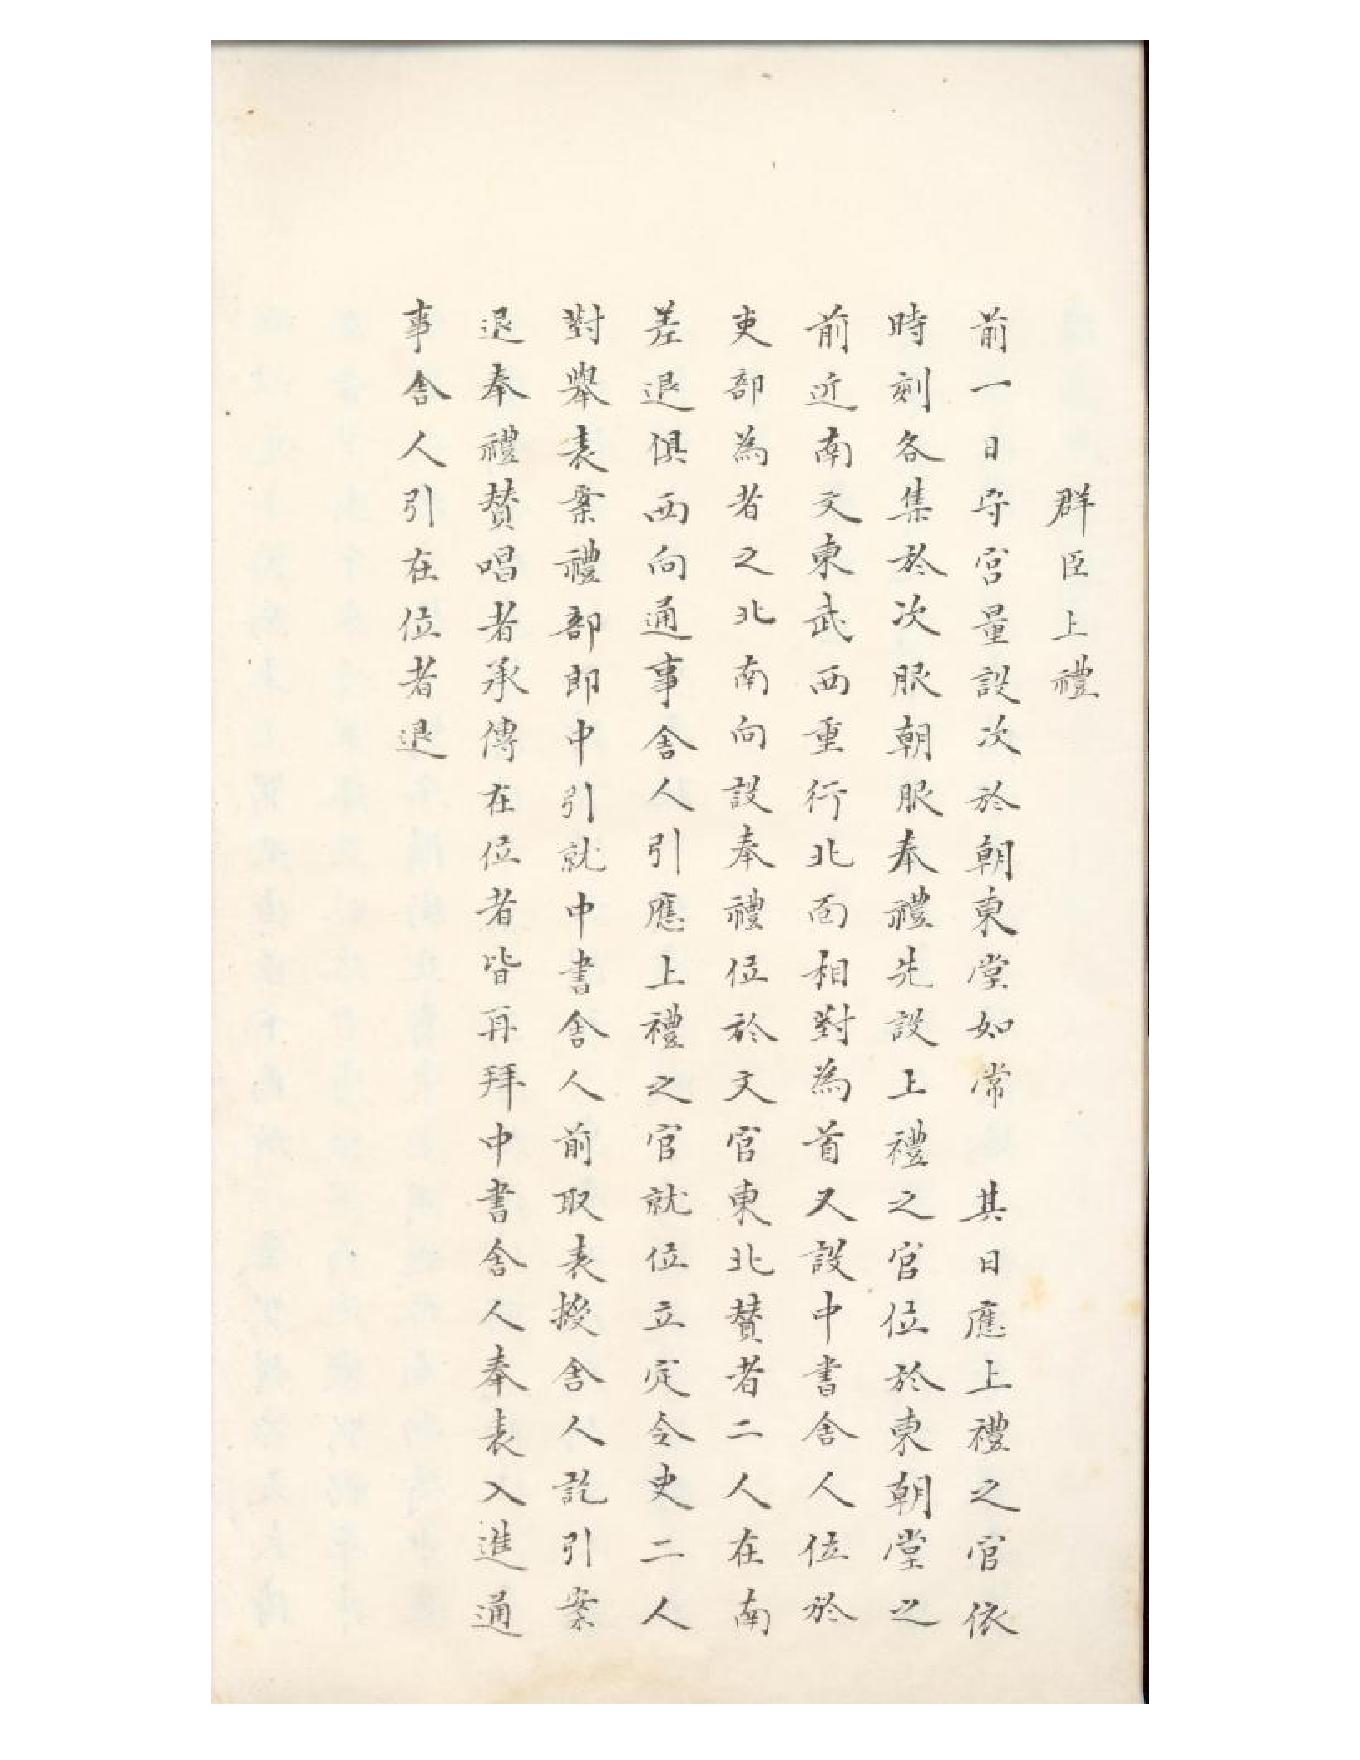 群臣上禮
前一日守宮量設次於朝東堂如常　其日應上禮之官依
時刻各集於次服朝服奉禮先設上禮之官位於東朝堂之
前近南文東武西重行北面相對為首又設中書舍人位於
吏部為者之北南向設奉禮位於文官東北贊者二人在南
差退俱西向通事舍人引應上禮之官就位立定令史二人
對舉表案禮部郎中引就中書舍人前取表授舍人訖引案
退奉禮贊唱者承傳在位者皆再拜中書舍人奉表入進通
事舍人引在位者退